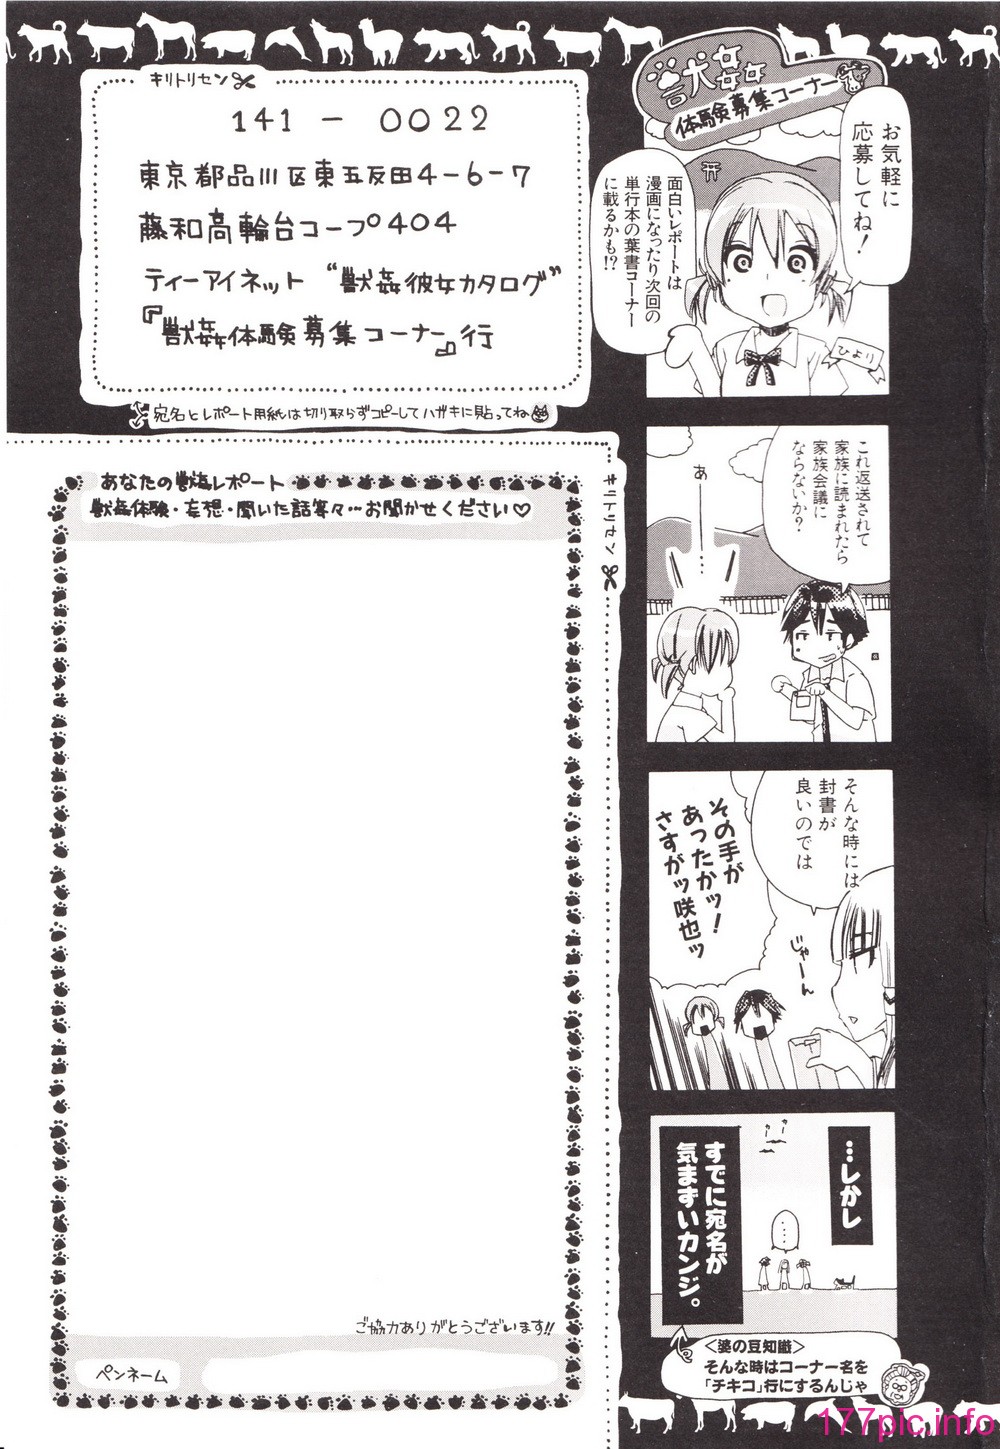 獣姦
体験募集コーナー
お気軽に
応募してね！
面白いレポートは
漫画になったり次回の
単行本の葉書コーナー
に載るかも!?
ひより
キリトリセン
141-0022
東京都品川区東五反田4-6-7
藤和高輪台コープ404
ティーアイネット “獣姦彼女カタログ”
『獣姦体験募集コーナー』行
宛名とレポート用紙は切り取らずコピーしてハガキに貼ってね
キリトリセン
あなたの獣姦レポート
獣姦体験・妄想・聞いた話等々…お聞かせください♡
ご協力ありがとうございます!!
ペンネーム
これ返送されて
家族に読まれたら
家族会議に
ならないか？
あ
…
そんな時には
封書が
良いのでは
じゃーん
その手が
あったかッ！
さすがッ咲也ッ
…しかし
……
すでに宛名が
気まずいカンジ。
＜婆の豆知識＞
そんな時はコーナー名を
「チキコ」行にするんじゃ
177pic.info